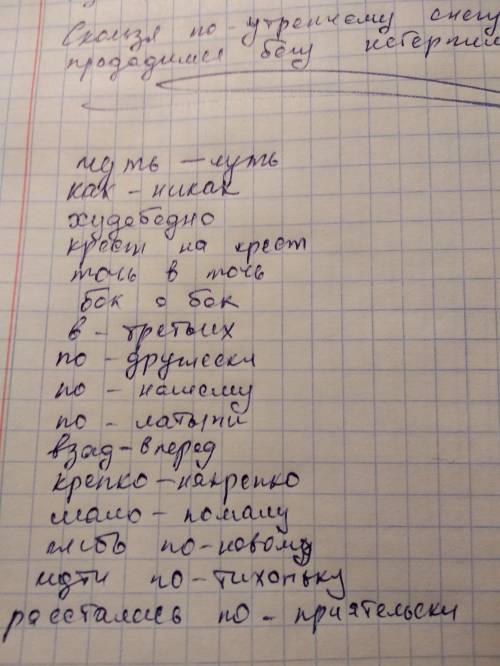 Скользя по утреннему снегу
предадимся бегу
чуть - чуть
как - никак
худобедно
крест на крест
точь в точь
бок о бок
в - третьих
по - дружески
по - нашему
по - латыни
взад - вперед
крепко - накрепко
мало - помалу
жить по - новому
идти по - тихоньку
расстались по - приятельски